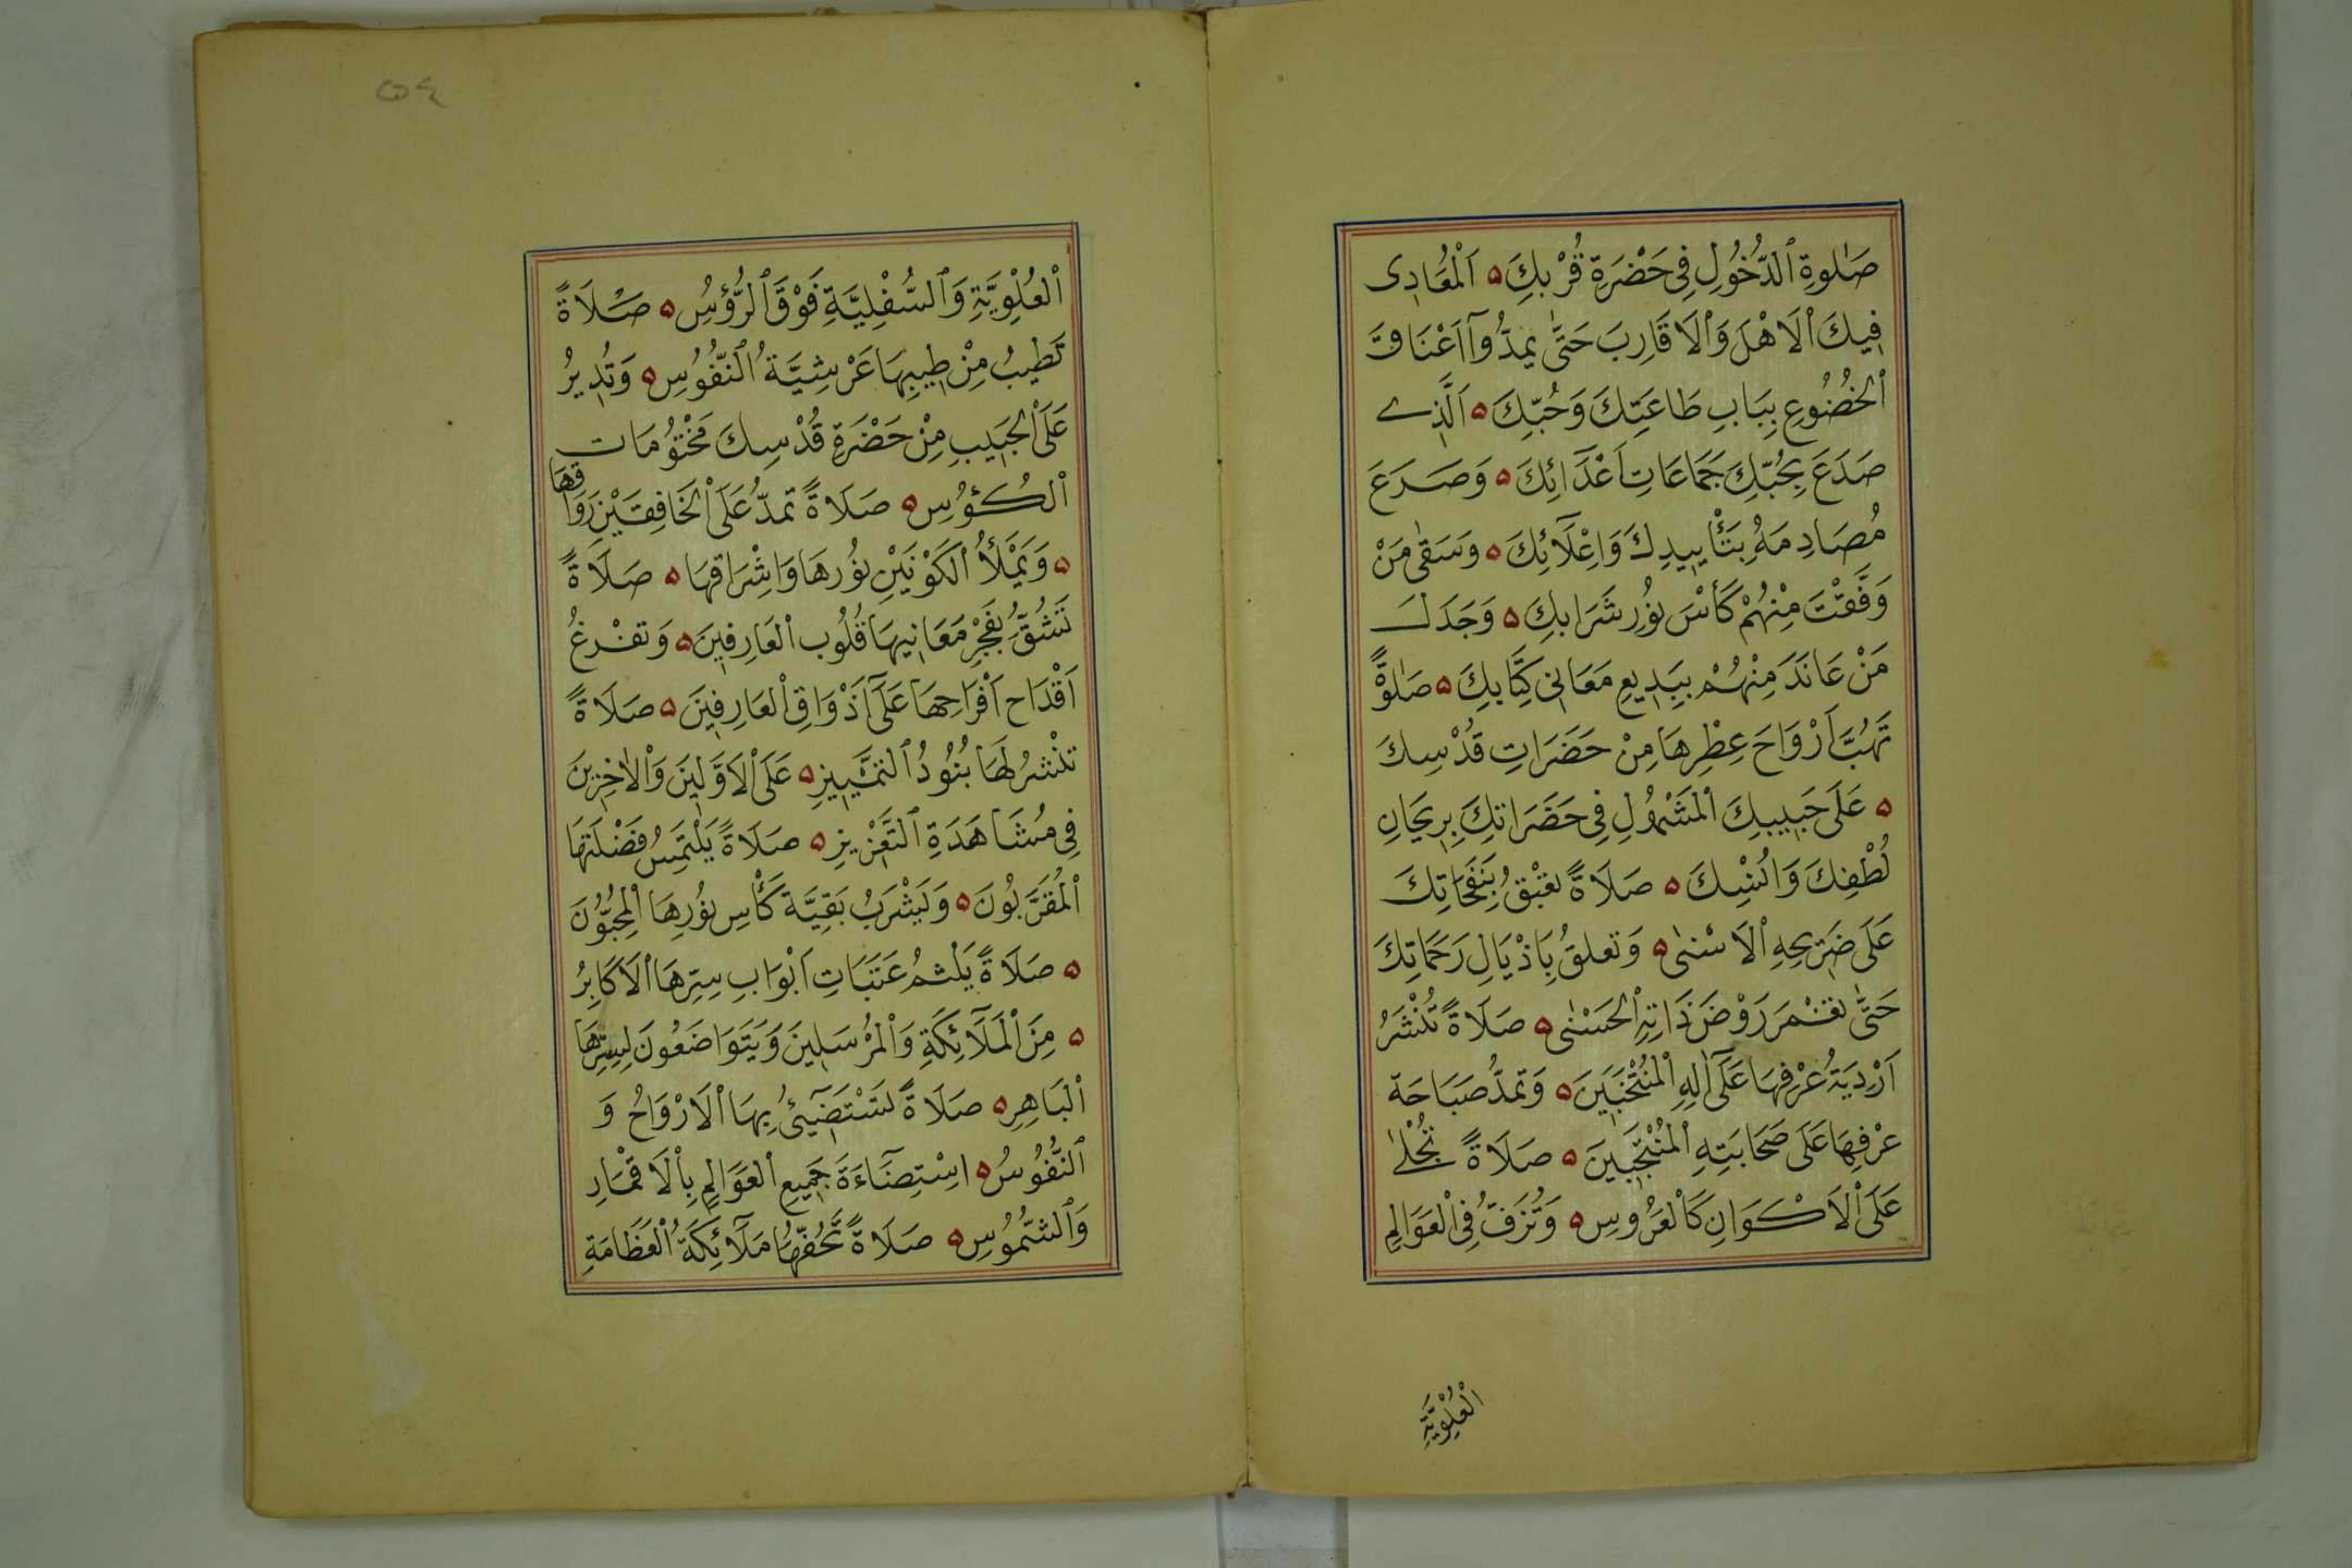 صَلٰوةِ ٱلدُّخُولِ فِى حَضْرَةِ قُرْبِكَ ۵ اَلْمُعَادِى
فِيكَ ٱلْاَهْلَ وَٱلْاَقَارِبَ حَتّٰى يَمِدُّوآ اَعْنَاقَ
ٱلْخُضُوعِ بِبَابِ طَاعَتِكَ وَحُبِّكَ ۵ اَلَّذِى
صَدَعَ بِحُبِّكَ جَمَاعَاتِ اَعْدَآئِكَ ۵ وَصَرَعَ
مُصَادِمَهُ بِتَأْيِيدِكَ وَاِعْلَآئِكَ ۵ وَسَقٰى مَنْ
وَفَّقْتَ مِنْهُمْ كَأْسَ نُورِ شَرَابِكَ ۵ وَجَدَلَ
مَنْ عَانَدَ مِنْهُمْ بِبَدِيعِ مَعَانِى كِتَابِكَ ۵ صَلٰوةً
تَهُبُّ اَرْوَاحَ عِطْرِهَا مِنْ حَضَرَاتِ قُدْسِكَ
۵ عَلَى حَبِيبِكَ ٱلْمَشْمُولِ فِى حَضَرَاتِكَ بِرَيْحَانِ
لُطْفِكَ وَاُنْسِكَ ۵ صَلَاةً تَعْبَقُ بِنَفَحَاتِكَ
عَلَى ضَرِيحِهِ ٱلْاَسْنٰى ۵ وَتَعلَقُ بِاَذْيَالِ رَحَمَاتِكَ
حَتّٰى تَغْمَرَ رَوْضَ ذَاتِهِ ٱلْحَسْنٰى ۵ صَلَاةً تُنْشَرُ
اَرْدِيَةُ عُرْفِهَا عَلَى اٰلِهِ ٱلْمُنْتَخَبِينَ ۵ وَتَمدُّ صَبَاحَة
عَرْفِهَا عَلَى صَحَابَتِهِ ٱلْمُنْتَجَبِينَ ۵ صَلَاةً تُجْلٰى
عَلَى ٱلْاَكْوَانِ كَالْعَرُوسِ ۵ وَتُزَفُّ فِى ٱلْعَوَالِمِ
الْعُلْوِيَّةِ
٥٤
ٱلْعُلْوِيَّةِ وَٱلسُّفْلِيَّةِ فَوْقَ ٱلرُّؤُسِ ۵ صَلَاةً
تَطِيبُ مِنْ طِيبِهَا عَرْشِيَّةُ ٱلنُّفُوُسِ ۵ وَتُدِيرُ
عَلَى ٱلْحَبِيبِ مِنْ حَضْرَةِ قُدْسِكَ مَخْتُومَات
ٱلْكُؤُوسِ ۵ صَلَاةً تَمدُّ عَلَى ٱلْخَافِقَيْنِ رَوَاقَهَا
۵ وَيَمْلَأُ ٱلْكَوْنَيْنِ نُورُهَا وَاِشْرَاقُهَا ۵ صَلَاةً
تَشُقُّ بِفَجْرِ مَعَانِيهَا قُلُوب ٱلْعَارِفِينَ ۵ وَتفْرغُ
اَقْدَاح اَفْرَاحِهَا عَلَى اَذْوَاقِ ٱلْعَارِفِينَ ۵ صَلَاةً
تنْشرُ لَهَا بُنُودُ ٱلتَّمْيِيزِ ۵ عَلَى ٱلْاَوَّلِينَ وَٱلْاٰخِرِينَ
فِى مُشَاهَدَةِ ٱلتَّعْزِيزِ ۵ صَلَاةً يَلْتَمِسُ فَضْلَتَهَا
ٱلْمُقَرَّبُونَ ۵ وَيَشْرَبُ بَقِيَّة كَأْسِ نُورِهَا ٱلْمُحِبُّوُنَ
۵ صَلَاةً يَلْثمُ عَتَبَاتِ اَبْوَابِ سِرِّهَا ٱلْاَكَابِرُ
۵ مِنَ ٱلْمَلَآئِكَةِ وَٱلْمُرْسَلِينَ وَيَتَوَاضَعُونَ لِسِرِّهَا
ٱلْبَاهِرِ ۵ صَلَاةً تَسْتَضَيئُ بِهَا ٱلْاَرْوَاحُ وَ
ٱلنُّفُوُسُ ۵ اسْتِضَآءَةَ جَمِيعِ ٱلْعَوَالِمِ بِٱلْاَقْمَارِ
وَٱلشُّمُوُسِ ۵ صَلَاةً تَحُفُّهَا مَلَآئِكَةُ ٱلْعَظَامَةِ